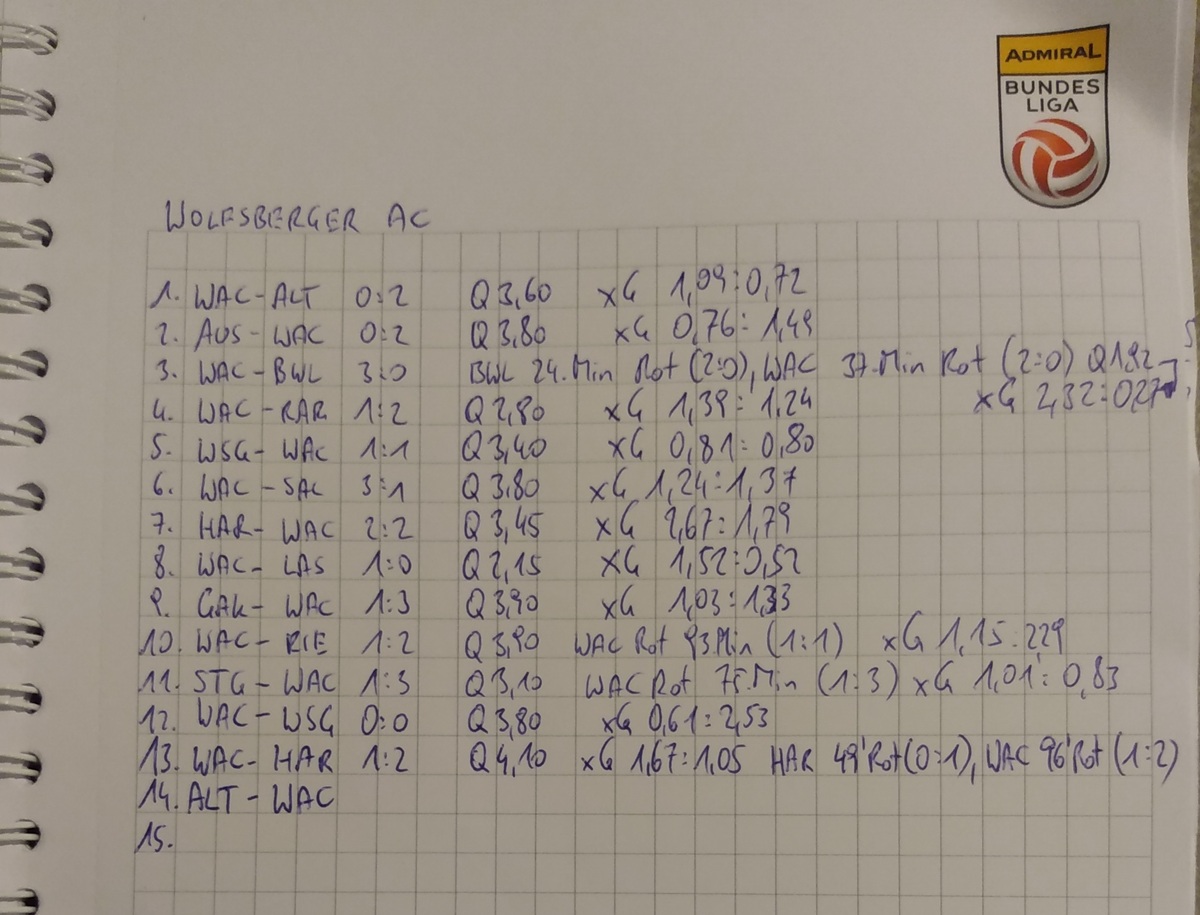 ADMIRAL
BUNDES
LIGA
WOLFSBERGER AC
1. WAC-ALT 0:2 Q 3,60 xG 1,09:0,72
2. AUS-WAC 0:2 Q 3,80 xG 0,76:1,49
3. WAC-BWL 3:0 BWL 24.Min Rot (2:0), WAC 37.Min Rot (2:0) Q 1,92
xG 2,32:0,27
4. WAC-RAR 1:2 Q 2,80 xG 1,39:1,24
5. WSG-WAC 1:1 Q 3,40 xG 0,81:0,80
6. WAC-SAL 3:1 Q 3,80 xG 1,24:1,37
7. HAR-WAC 2:2 Q 3,45 xG 2,67:1,79
8. WAC-LAS 1:0 Q 2,15 xG 1,52:0,52
9. GAK-WAC 1:3 Q 3,90 xG 1,03:1,33
10. WAC-RIE 1:2 Q 3,90 WAC Rot 93.Min (1:1) xG 1,15:2,29
11. STG-WAC 1:3 Q 3,10 WAC Rot 75.Min (1:3) xG 1,01:0,83
12. WAC-WSG 0:0 Q 3,80 xG 0,61:2,53
13. WAC-HAR 1:2 Q 4,10 xG 1,67:1,05 HAR 49' Rot (0:1), WAC 96' Rot (1:2)
14. ALT-WAC
15.